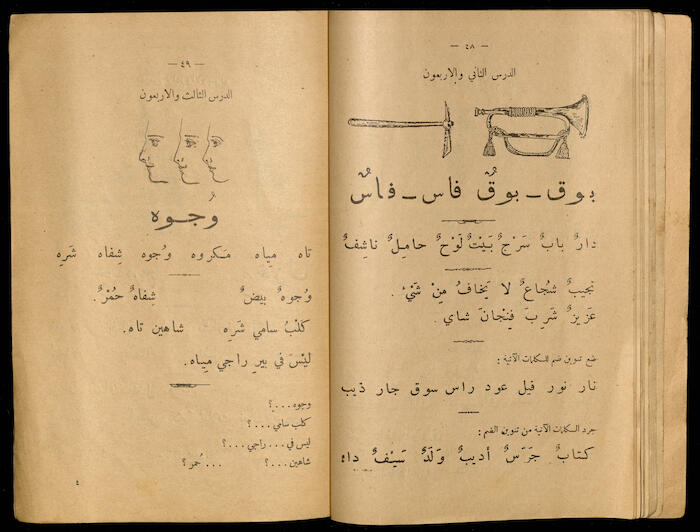 — ٤٨ —
الدرس الثاني والاربعون
بوق - بوقٌ فاس - فاسٌ
دارٌ بابٌ سَرْجٌ بَيْتٌ لَوْحٌ حامِلٌ ناشِفٌ
نجيبٌ شُجاعٌ لا يَخافُ مِنْ شَيْءٍ .
عَزيزٌ شَرِبَ فِنْجانَ شاي .
ضع تنوين ضم للكلمات الآتية :
نار نور فيل عود راس سوق جار ذيب
جرد الكلمات الآتية من تنوين الضم :
كتابٌ جَرَسٌ أديبٌ وَلَدٌ سَيْفٌ
— ٤٩ —
الدرس الثالث والاربعون
وُجـوه
تاه مِياه مَكروه وُجوه شِفاه شَرِه
وُجوهٌ بيضٌ شِفاهٌ حُمْرٌ.
كَلْبُ سامي شَرِه شاهين تاه.
لَيْسَ في بيرِ راجي مِياه.
وجوه ...؟
كلب سامي ...؟
ليس في ... راجي ...؟
شاهين ...؟ ... حُمر ؟
٤